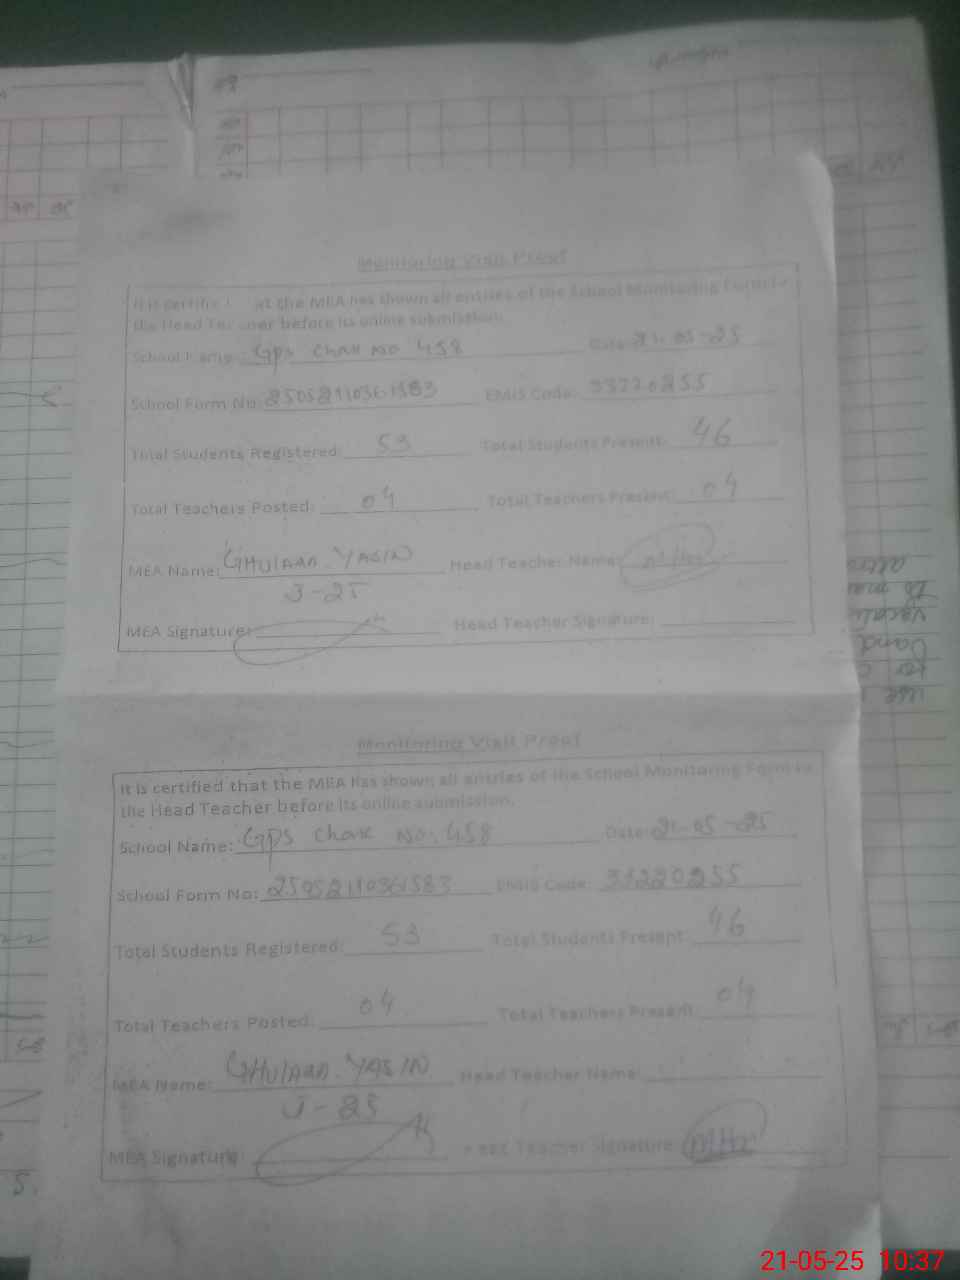 Monitoring Visit Proof
It is certifie at the MEA has shown all entries of the School Monitoring Form to
the Head Tea her before its online submission.
School Name: GPS Chak No 458 Date: 21-05-25
School Form No: 25052110361583 EMIS Code: 33220255
Total Students Registered: 53 Total Students Present: 46
Total Teachers Posted: 04 Total Teachers Present: 04
MEA Name: GHULAM YASIN Head Teacher Name:
J-25
MEA Signature: Head Teacher Signature:
Monitoring Visit Proof
It is certified that the MEA has shown all entries of the School Monitoring Form to
the Head Teacher before its online submission.
School Name: GPS Chak No. 458 Date: 21-05-25
School Form No: 25052110361583 EMIS Code: 33220255
Total Students Registered: 53 Total Students Present: 46
Total Teachers Posted: 04 Total Teachers Present: 04
MEA Name: GHULAM YASIN Head Teacher Name:
J-25
MEA Signature: Head Teacher Signature:
21-05-25 10:37